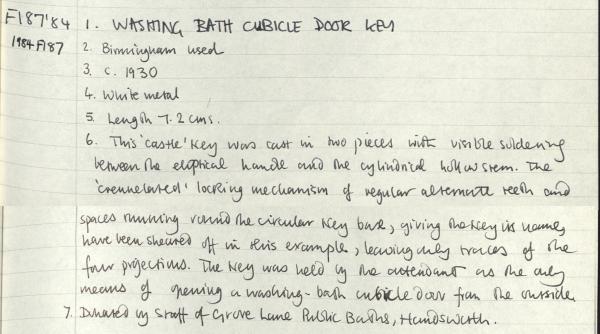 F187'84 1. WASHING BATH CUBICLE DOOR KEY
1984F187 2. Birmingham used
3. c. 1930
4. White metal
5. Length 7.2 cms.
6. This 'castle' key was cast in two pieces with visible soldering
between the eliptical handle and the cylindrical hollow stem. The
'crennelated' locking mechanism of regular alternate teeth and
spaces running round the circular key base, giving the key its name,
have been sheared off in this example, leaving only traces of the
four projections. The key was held by the attendant as the only
means of opening a washing-bath cubicle door from the outside.
7. Donated by Staff of Grove Lane Public Baths, Handsworth.